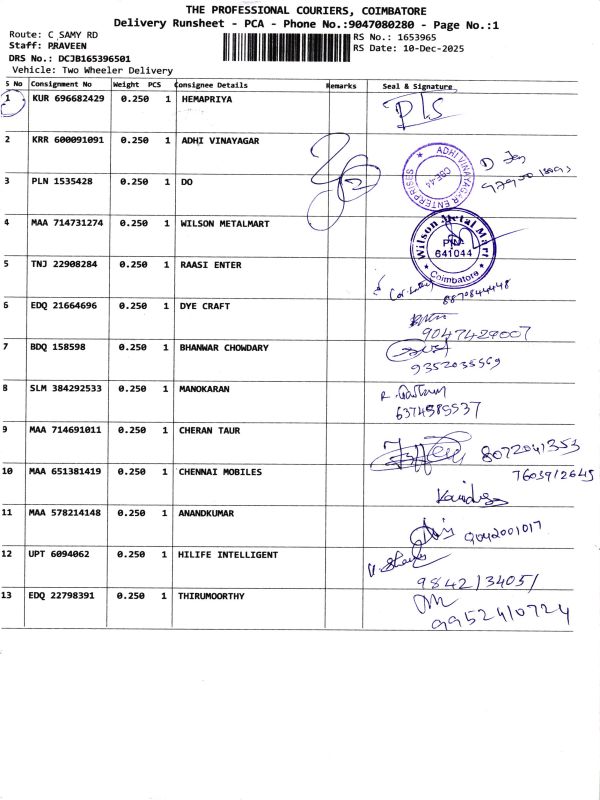 THE PROFESSIONAL COURIERS, COIMBATORE
Delivery Runsheet - PCA - Phone No.:9047080280 - Page No.:1
Route: C SAMY RD
RS No.: 1653965
Staff: PRAVEEN
RS Date: 10-Dec-2025
DRS No.: DCJB165396501
Vehicle: Two Wheeler Delivery
S No Consignment No Weight PCS Consignee Details Remarks Seal & Signature
1 KUR 696682429 0.250 1 HEMAPRIYA
2 KRR 600091091 0.250 1 ADHI VINAYAGAR
ADHI VINAYAGAR ENTERPRISES
CBE-44
3 PLN 1535428 0.250 1 DO
4 MAA 714731274 0.250 1 WILSON METALMART
Wilson Metal Mart
PIN
641044
Coimbatore
5 TNJ 22908284 0.250 1 RAASI ENTER
8870844448
6 EDQ 21664696 0.250 1 DYE CRAFT
9047429007
7 BDQ 158598 0.250 1 BHANWAR CHOWDARY
9352035569
8 SLM 384292533 0.250 1 MANOKARAN
6374589537
9 MAA 714691011 0.250 1 CHERAN TAUR
8072041353
10 MAA 651381419 0.250 1 CHENNAI MOBILES
7603912645
11 MAA 578214148 0.250 1 ANANDKUMAR
9042001017
12 UPT 6094062 0.250 1 HILIFE INTELLIGENT
9842134051
13 EDQ 22798391 0.250 1 THIRUMOORTHY
9952410724